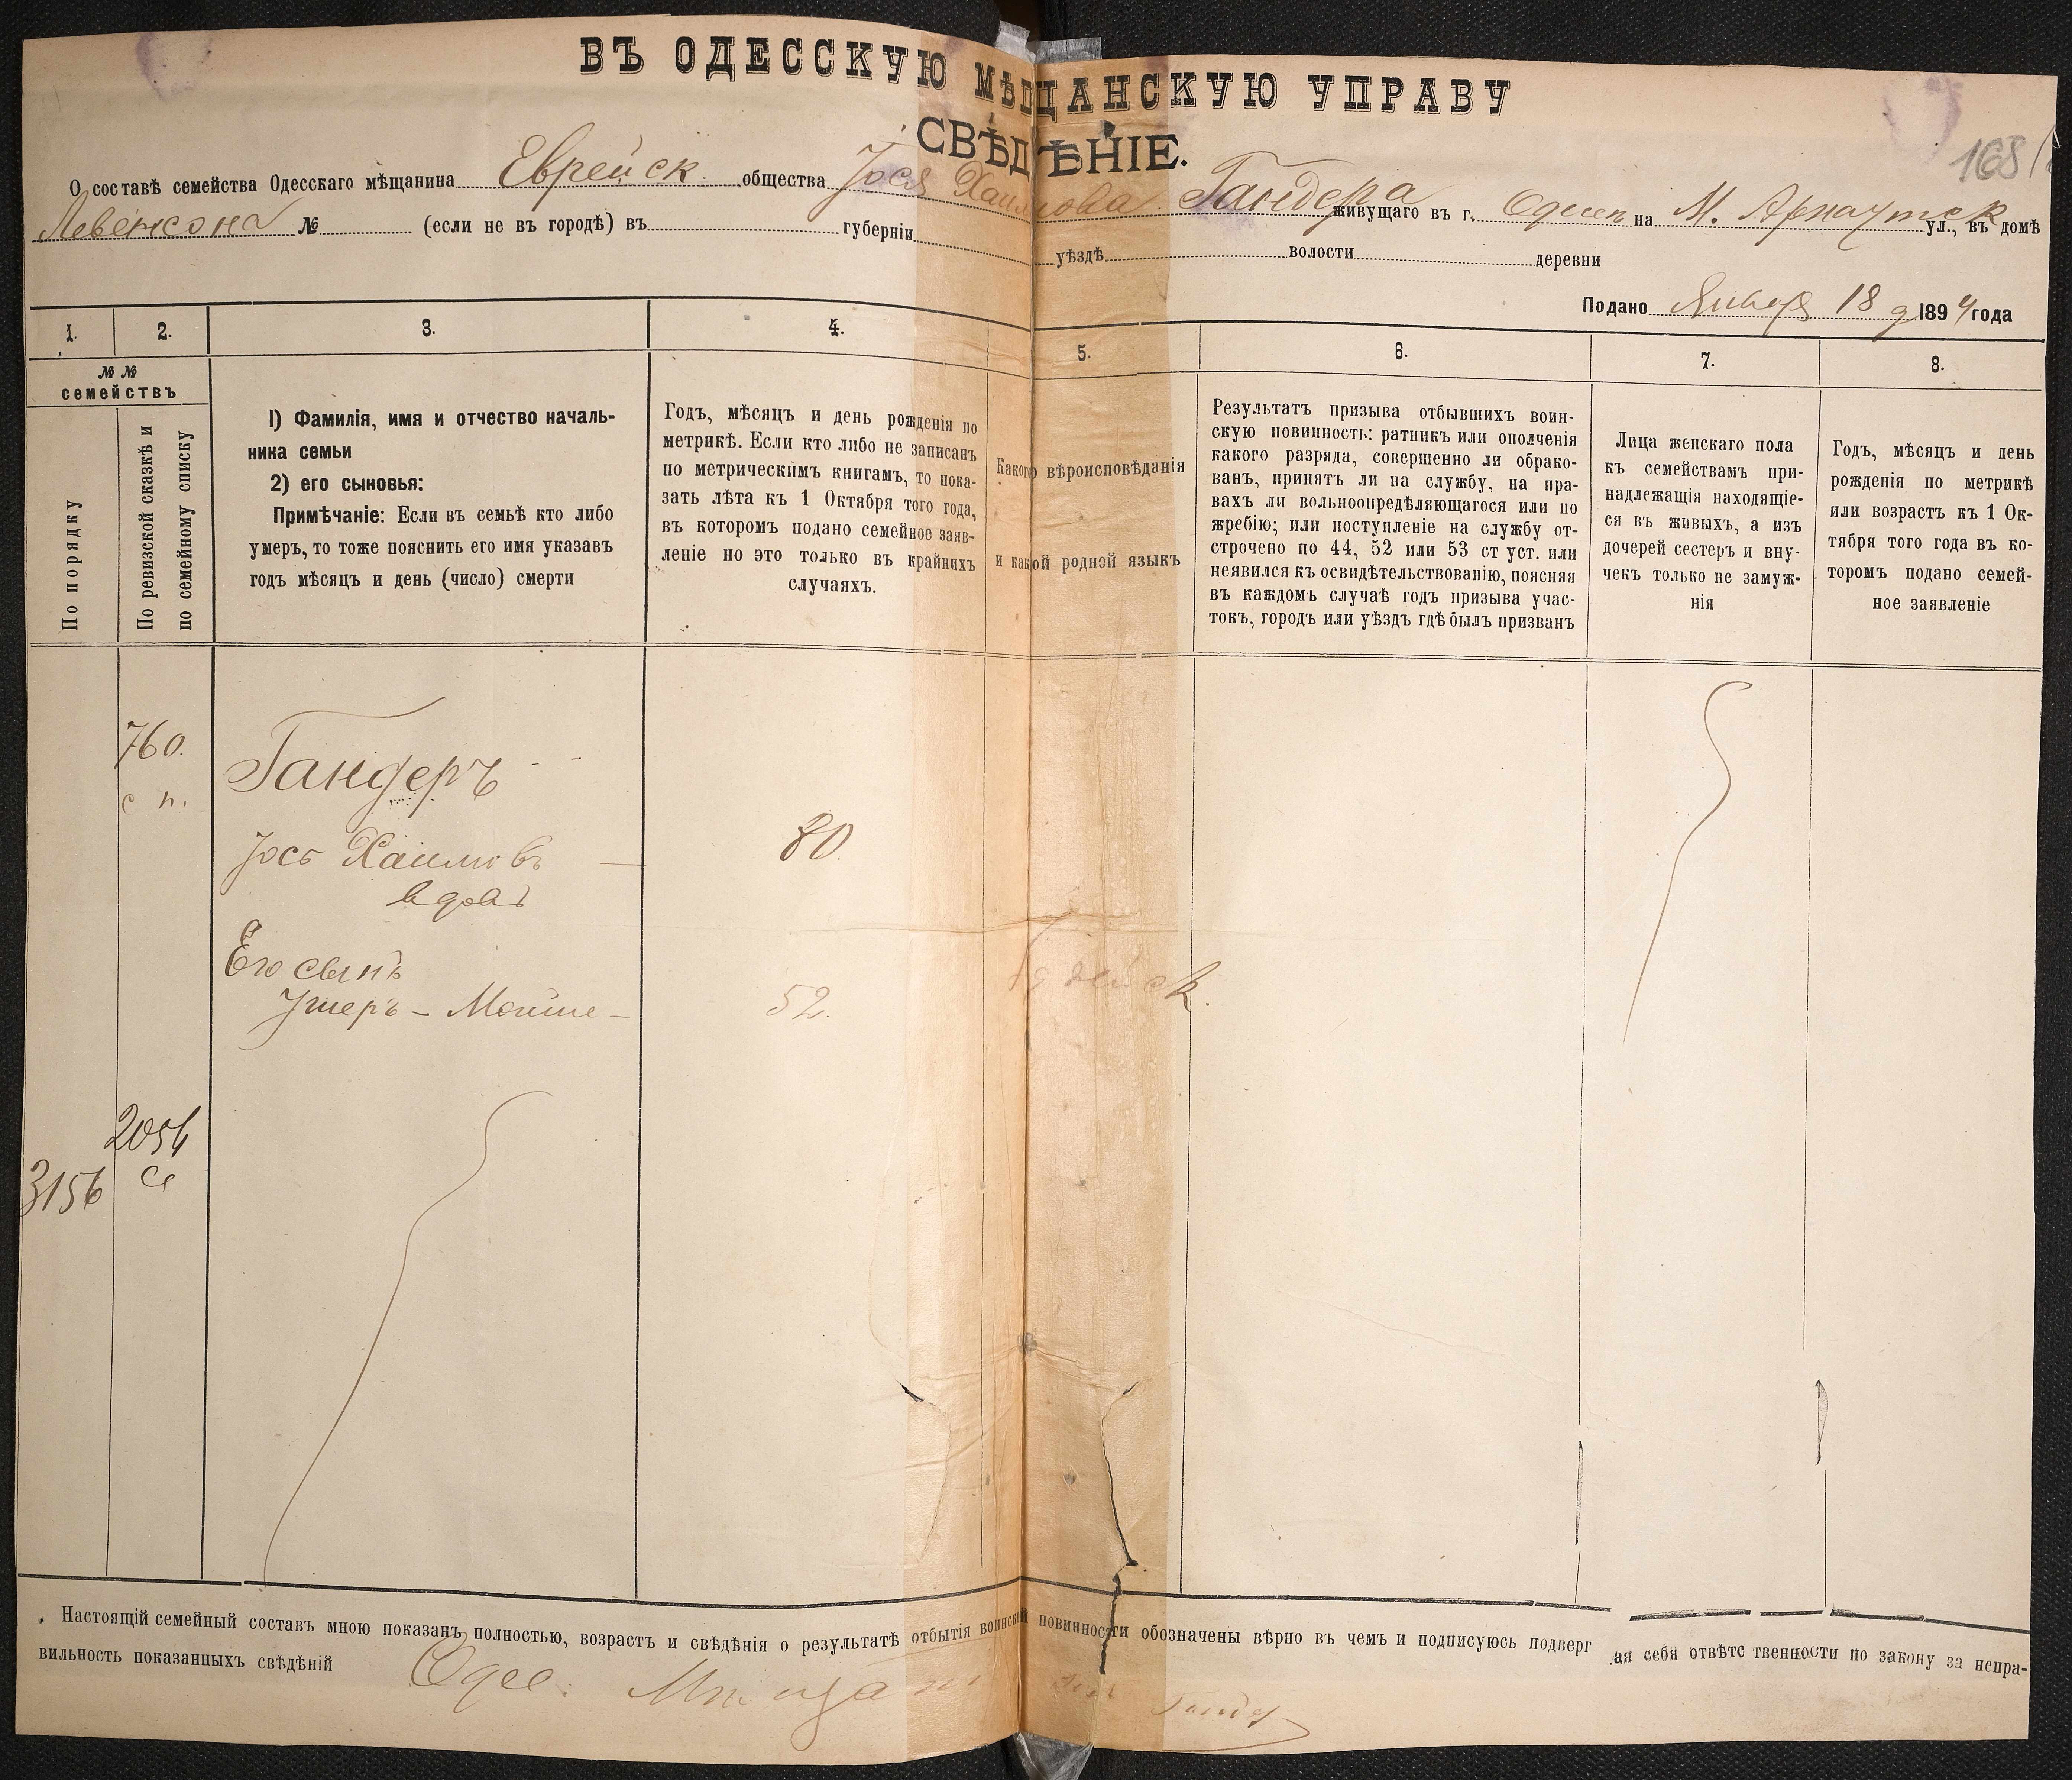 ВЪ ОДЕССКУЮ МѢЩАНСКУЮ УПРАВУ
СВѢДѢНІЕ.
168
О составѣ семейства Одесскаго мѣщанина Еврейск. общества Іося Хаимова Гандера живущаго въ г. Одессѣ на М. Арнаутск ул., въ домѣ
Левенсона № (если не въ городѣ) въ губерніи уѣздѣ волости деревни
Подано Января 18 д 1894 года
1. 2. 3. 4. 5. 6. 7. 8.
№ №
семействъ
По порядку
По ревизской сказкѣ и
по семейному списку
1) Фамилія, имя и отчество началь-
ника семьи
2) его сыновья:
Примѣчаніе: Если въ семьѣ кто либо
умеръ, то тоже пояснить его имя указавъ
годъ мѣсяцъ и день (число) смерти
Годъ, мѣсяцъ и день рожденія по
метрикѣ. Если кто либо не записанъ
по метрическимъ книгамъ, то пока-
зать лѣта къ 1 Октября того года,
въ которомъ подано семейное заяв-
леніе но это только въ крайнихъ
случаяхъ.
Какого вѣроисповѣданія
и какой родной языкъ
Результатъ призыва отбывшихъ воин-
скую повинность: ратникъ или ополченія
какого разряда, совершенно ли обрако-
ванъ, принятъ ли на службу, на пра-
вахъ ли вольноопредѣляющагося или по
жребію; или поступленіе на службу от-
строчено по 44, 52 или 53 ст уст. или
неявился къ освидѣтельствованію, поясняя
въ каждомъ случаѣ годъ призыва учас-
токъ, городъ или уѣздъ гдѣ былъ призванъ
Лица женскаго пола
къ семействамъ при-
надлежащія находящіе-
ся въ живыхъ, а изъ
дочерей сестеръ и вну-
чекъ только не замуж-
нія
Годъ, мѣсяцъ и день
рожденія по метрикѣ
или возрастъ къ 1 Ок-
тября того года въ ко-
торомъ подано семей-
ное заявленіе
760.
с п.
Гандеръ
Іось Хаимовъ — 80.
вдовъ
Его сынъ
Ушеръ - Мойше - 52.
Іудейск.
2054
3156
Настоящій семейный составъ мною показанъ полностью, возрастъ и свѣдѣнія о результатѣ отбытія воинской повинности обозначены вѣрно въ чемъ и подписуюсь подверг ая себя отвѣтс твенности по закону за непра-
вильность показанныхъ свѣдѣній Одес. Мѣщанъ Гандер